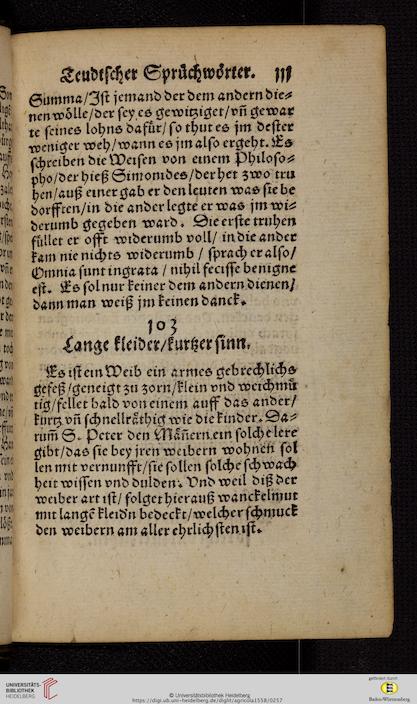 Teudtscher Sprüchwörter. 111
Summa/Ist jemand der dem andern die⸗
nen wölle/der sey es gewitziget/vñ gewar
te seines lohns dafür/so thut es jm dester
weniger weh/wann es jm also ergeht. Es
schreiben die Weisen von einem Philoso⸗
pho/der hieß Simonides/der het zwo tru
hen/auß einer gab er den leuten was sie be
dorfften/in die ander legte er was jm wi⸗
derumb gegeben ward. Die erste truhen
füllet er offt widerumb voll/ in die ander
kam nie nichts widerumb / sprach er also/
Omnia sunt ingrata / nihil fecisse benigne
est. Es sol nur keiner dem andern dienen/
dann man weiß jm keinen danck.
103
Lange kleider/kurtzer sinn.
Es ist ein Weib ein armes gebrechlichs
gefeß/geneigt zu zorn/klein vnd weichmü
tig/fellet bald von einem auff das ander/
kurtz vñ schnellräthig wie die kinder. Da⸗
rum̃ S. Peter den Mãnern ein solche lere
gibt/das sie bey jren weibern wohnen sol
len mit vernunfft/sie sollen solche schwach
heit wissen vnd dulden. Vnd weil diß der
weiber art ist/ folget hierauß wanckelmut
mit langẽ kleidn bedeckt/welcher schmuck
den weibern am aller ehrlichsten ist.
UNIVERSITÄTS-
BIBLIOTHEK
HEIDELBERG
© Universitätsbibliothek Heidelberg
https://digi.ub.uni-heidelberg.de/diglit/agricola1558/0257
gefördert durch
Baden-Württemberg